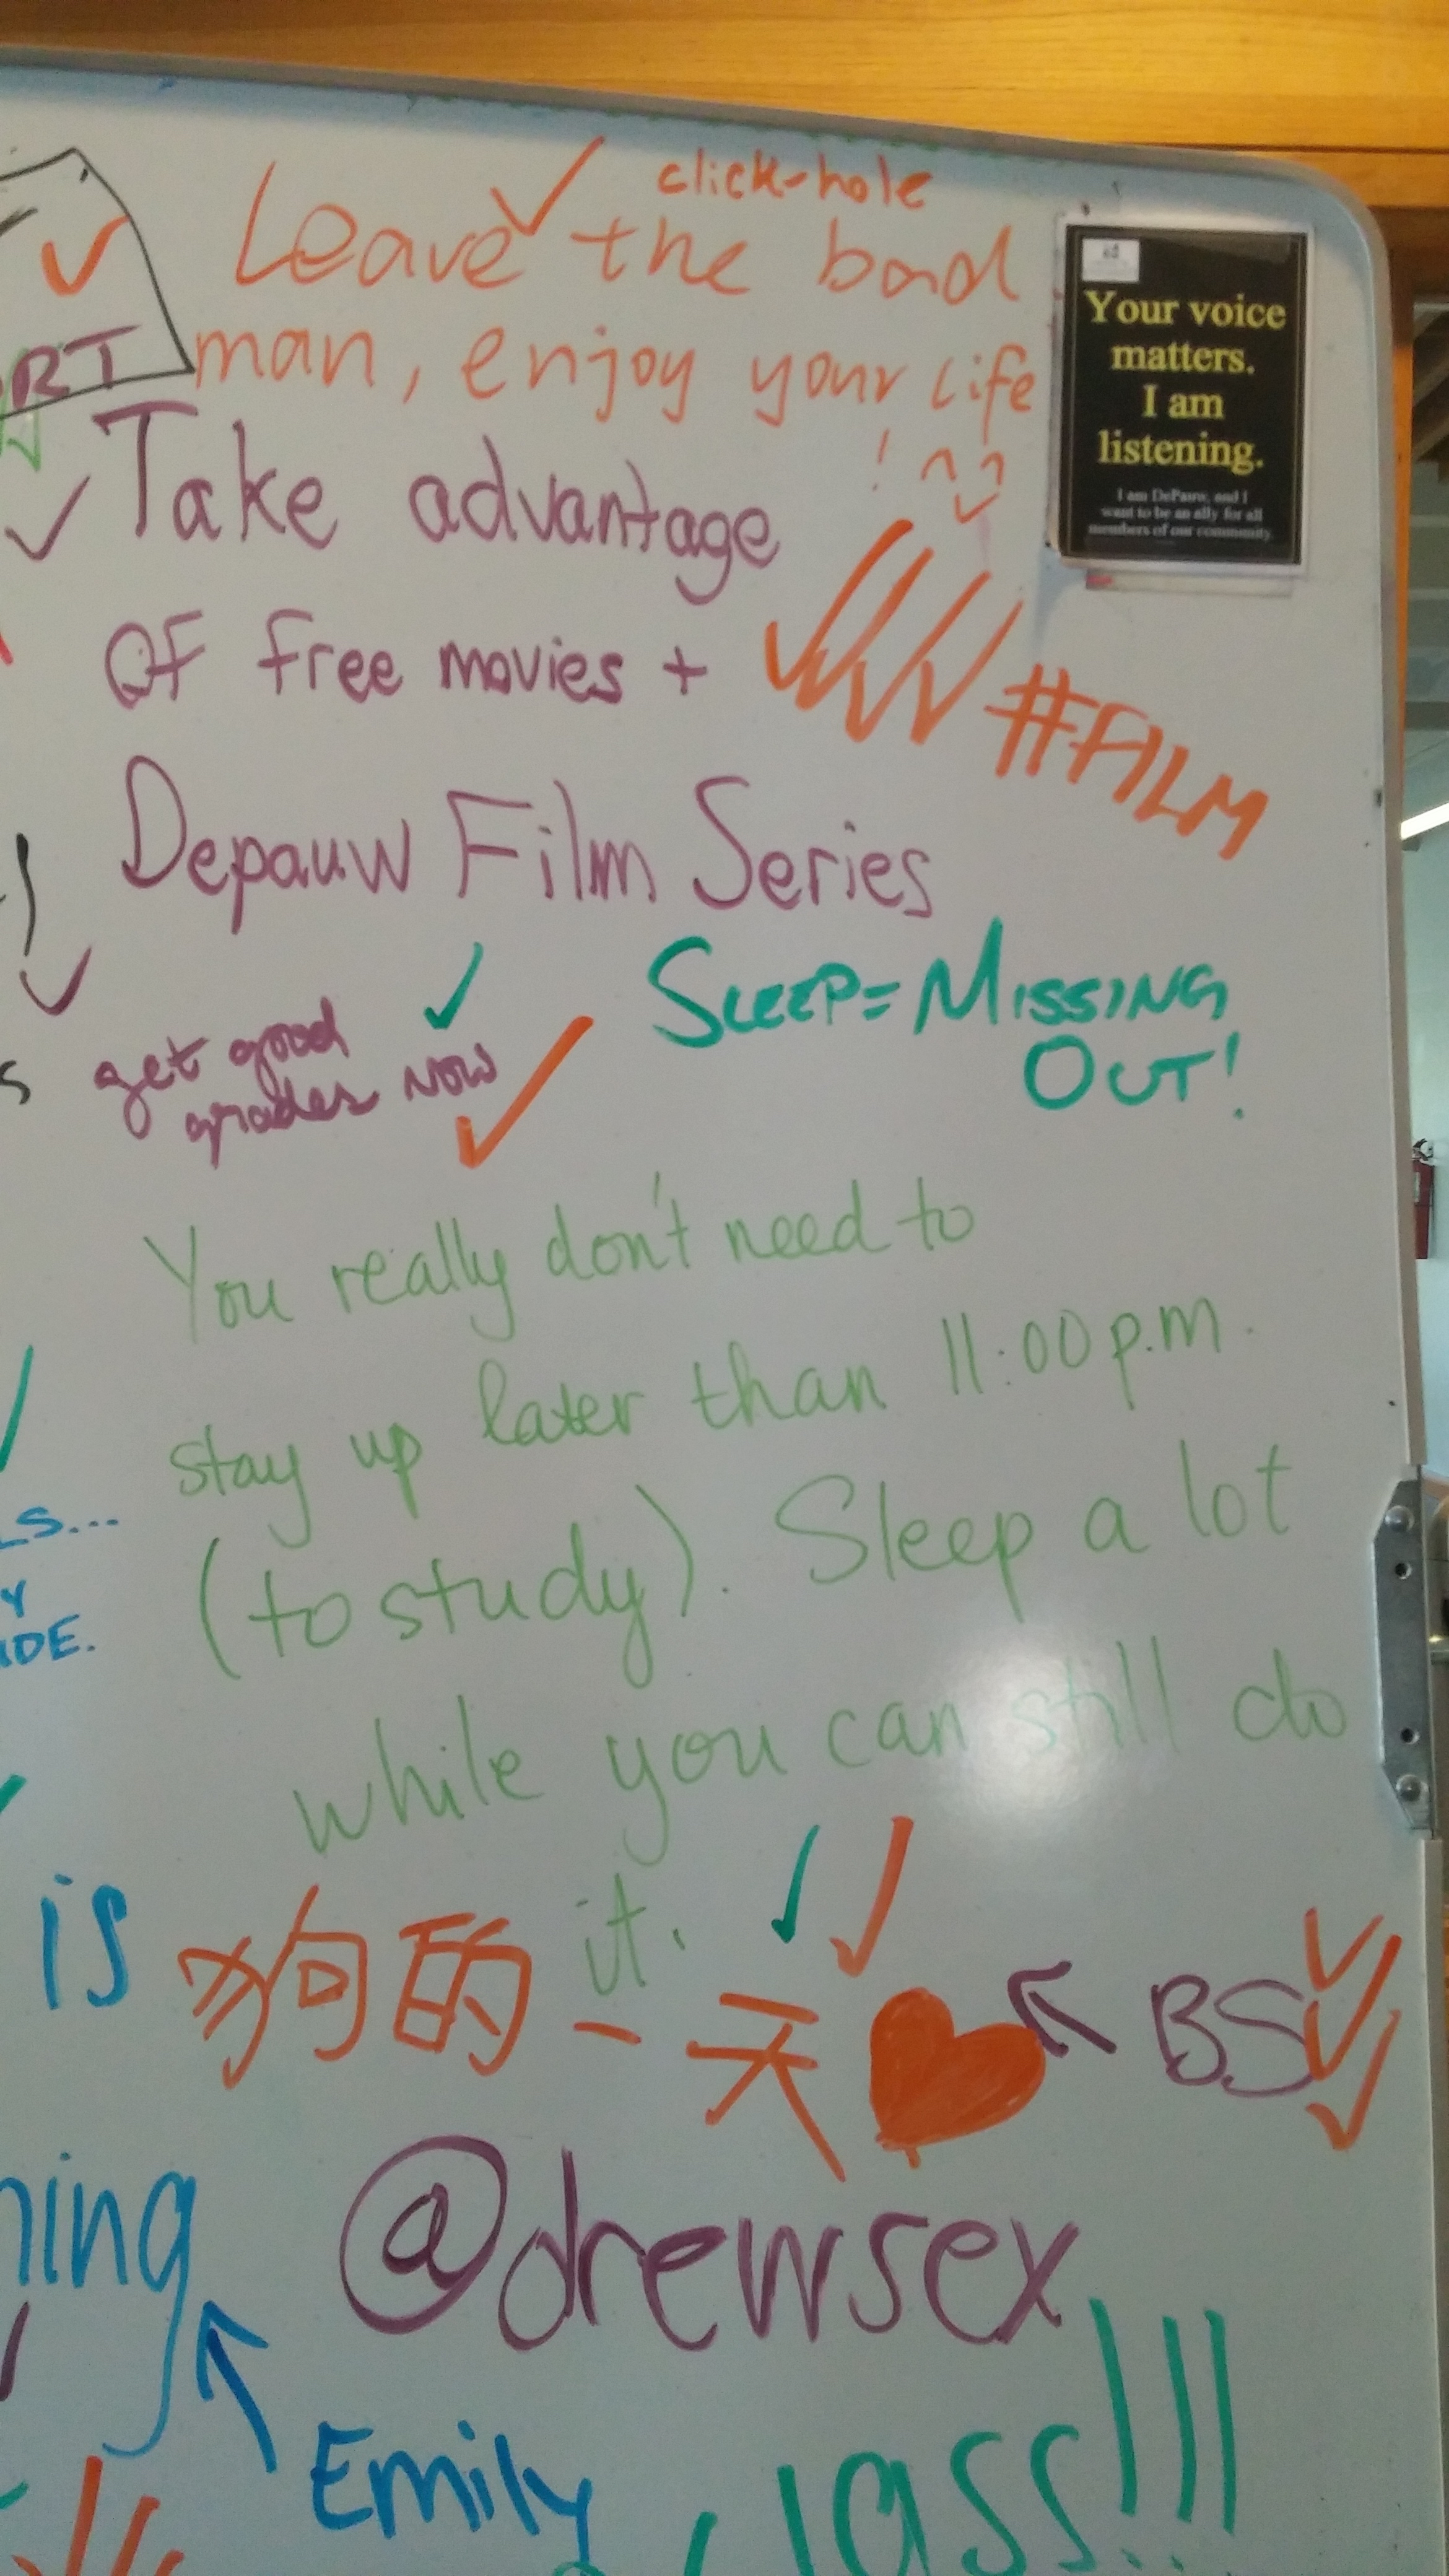 click-hole
Leave the bad
man, enjoy your life
!
RT
Your voice
matters.
I am
listening.
I am DePauw, and I
want to be an ally for all
members of our community.
Take advantage
of free movies +
#FILM
Depauw Film Series
get good
grades now
SLEEP = MISSING
OUT!
You really don't need to
stay up later than 11:00 p.m.
(to study). Sleep a lot
LS...
Y
DE.
while you can still do
it.
is 狗的一天
BS
@drewsex
ning
Emily
lass!!!